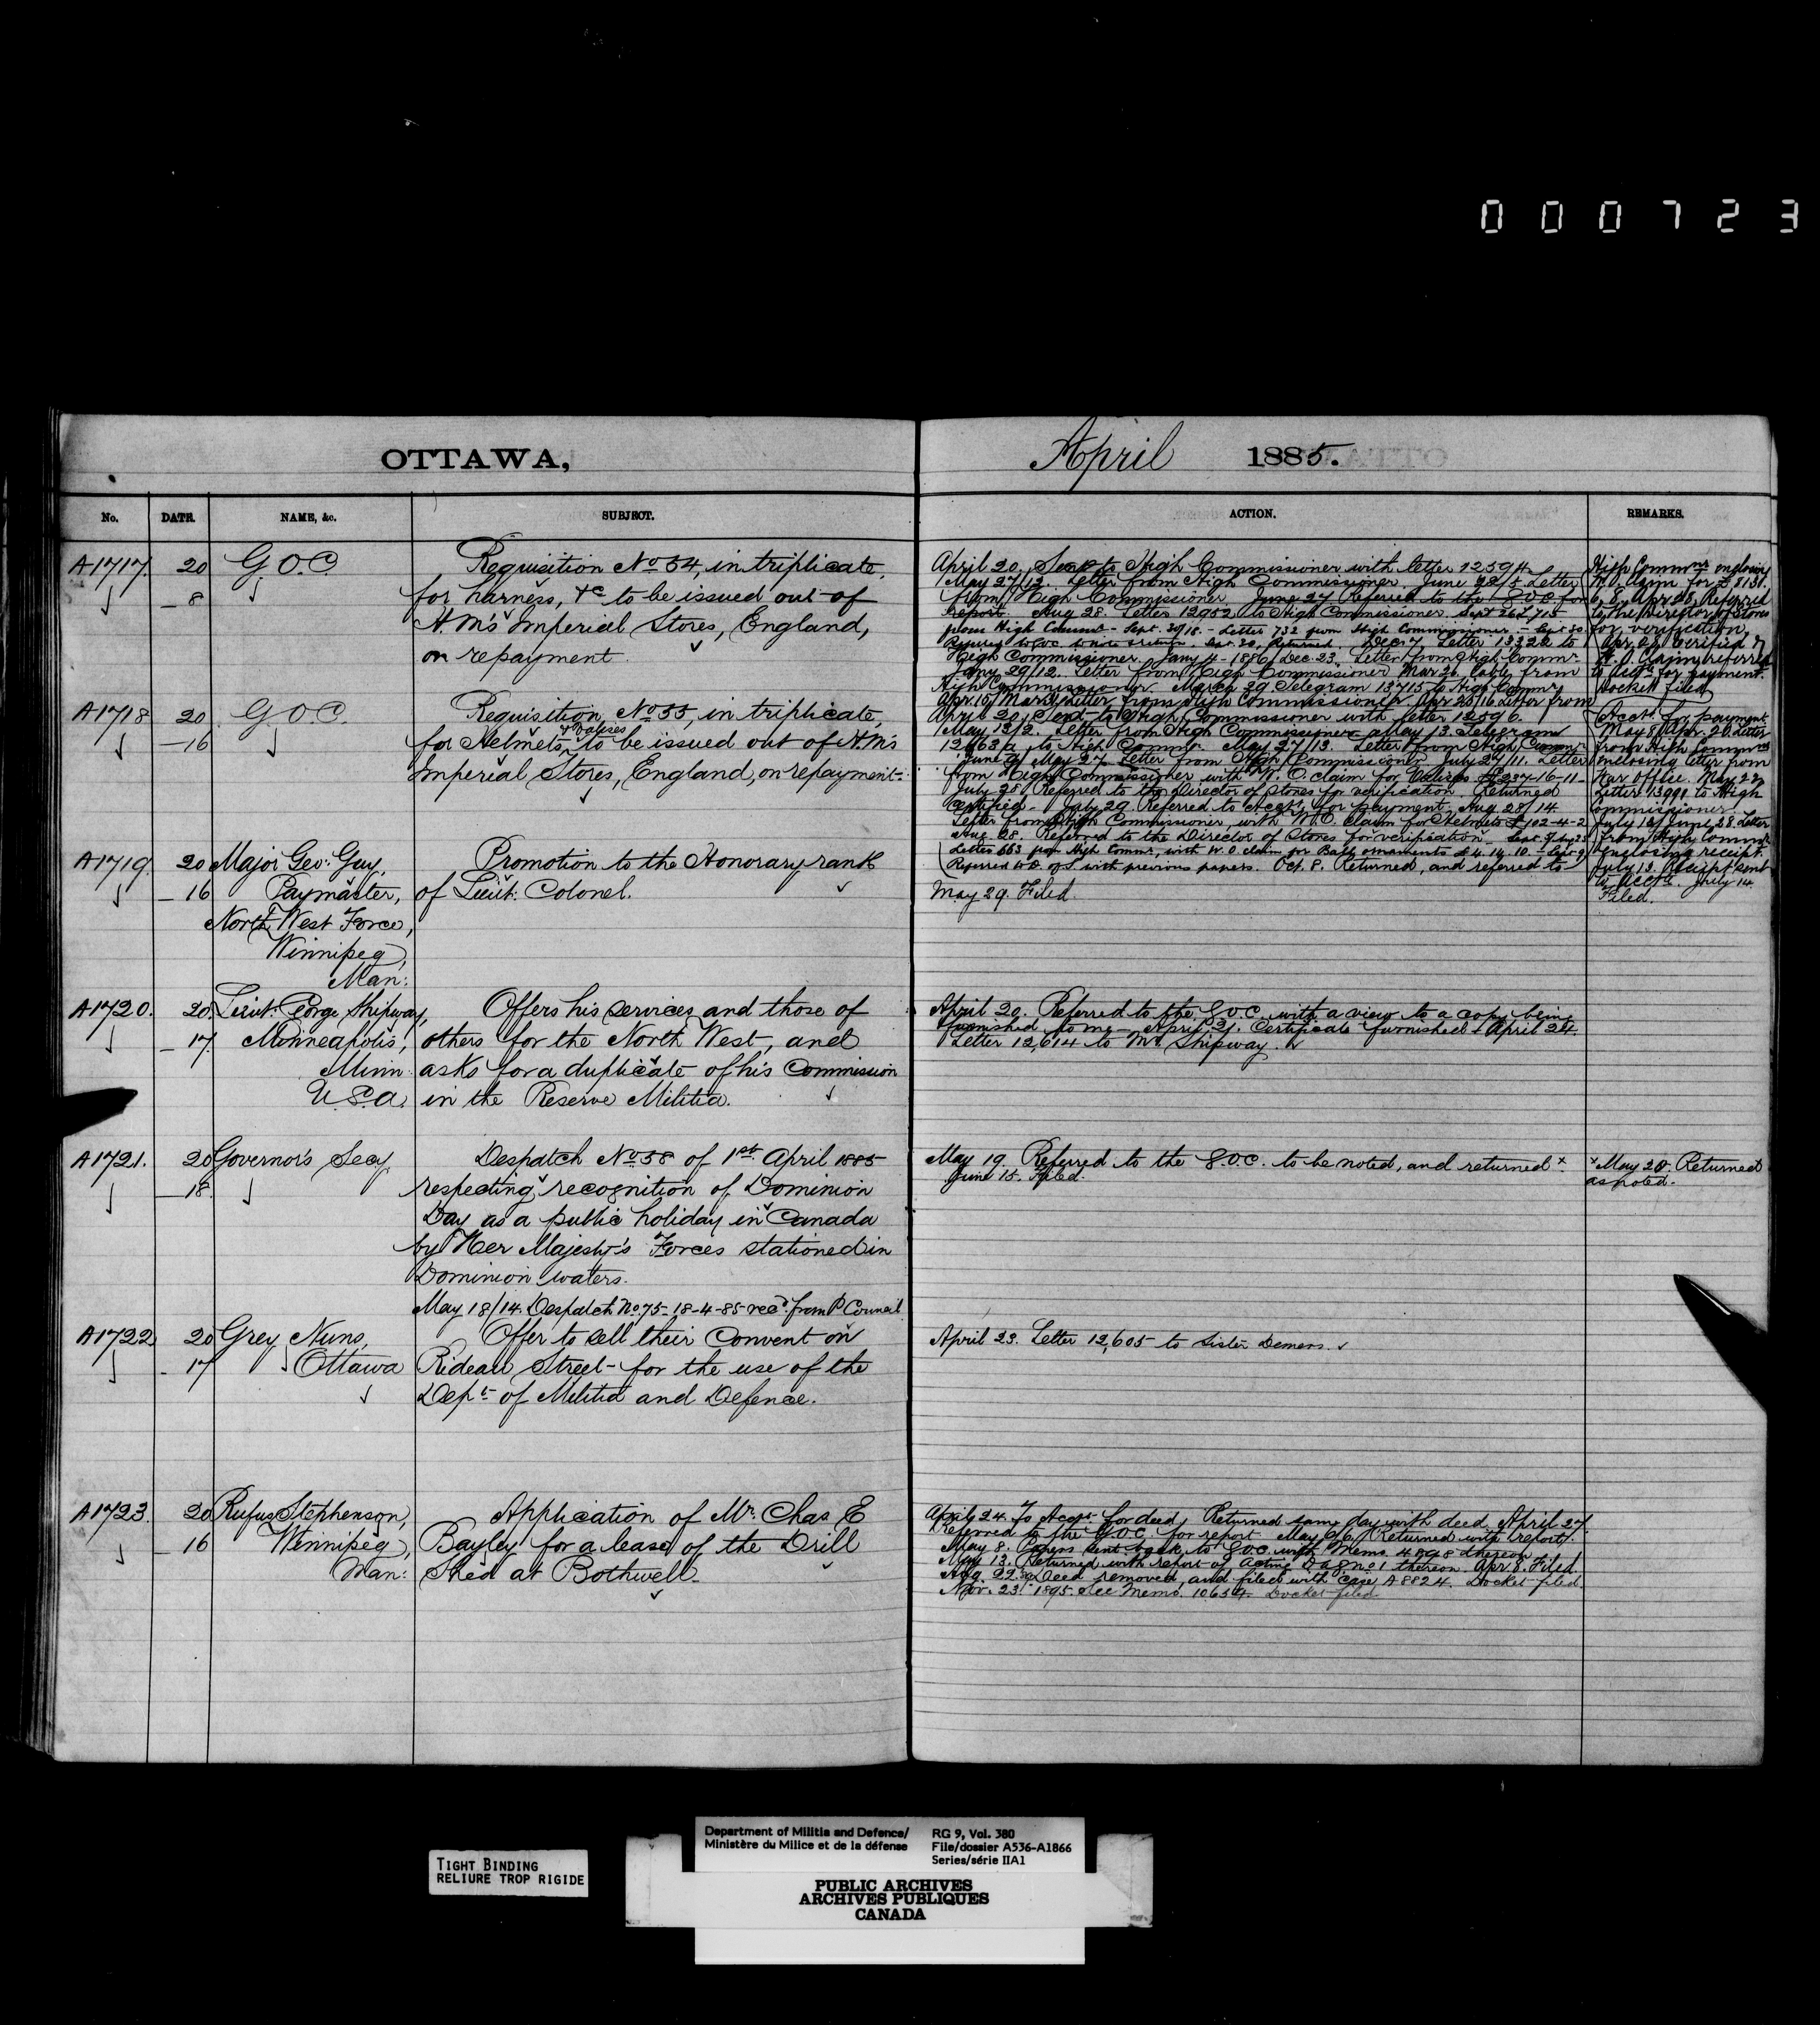 000723
OTTAWA,
April 1885.
No. DATE. NAME, &c. SUBJECT.
ACTION. REMARKS.
A1717. 20 G.O.C. Requisition No 54, in triplicate,
8 for harness, &c to be issued out of
H.M's Imperial Stores, England,
on repayment.
April 20. Sent to High Commissioner with letter 12594.
May 27/12. Letter from High Commissioner. June 22/5 Letter
from High Commissioner. June 24 Referred to the G.O.C. for
report. Aug 28. Letter 12952 to High Commissioner. Sept 26 L 715
from High Comm - Sept. 30/18 - Letter 732 from High Commissioner - Sept 30
Referred to GOC to note & return. Sept. 30. Returned. Letter 13322 to
High Commissioner. Jany 4 - 1886/Dec. 23. Letter from High Commr.
Jany 29/12. Letter from High Commissioner Mar 26 Cable from
High Commissioner. March 29 Telegram 13715 to High Commr
Apr 10/ Letter from High Commissioner. Apr 26/16 Letter from
High Commr enclosing
W.O. claim for £ 3131.
6. 8. Apr 28. Referred
to the Director of Stores
for verification.
Apr 28/ Verified &
W.O. Claim referred
to Acct for payment.
Docket filed
A1718 20 G.O.C. Requisition No 55, in triplicate,
16 for Helmets & Valises to be issued out of H.M's
Imperial Stores, England, on repayment.
April 20. Sent to High Commissioner with letter 12596.
May 13/2. Letter from High Commissioner May 13. Telegram
12663a to High Commr. May 27/13. Letter from High Commr
June 9/ May 27. Letter from High Commissioner July 27/11. Letter
from High Commissioner with W.O. claim for Valises £237-16-11-
July 28. Referred to the Director of Stores for verification. Returned
Certified - July 29 Referred to Acct for payment. Aug 28/14
Letter from High Commissioner with W.O. Claim for Helmets £102-4-2
Aug. 28. Referred to the Director of Stores for verification
Letter 663 from High Commr, with W.O. claim for Ball ornaments £4.14.10. - Sept 9
Referred to D of S with previous papers. Oct. 8. Returned, and referred to
Acct for payment
May 8/Apr. 20. Letter
from High Commr
enclosing letter from
War Office. May 22
Letter 13991 to High
Commissioner.
July 12/ June 28. Letter
from High Commr
enclosing receipt.
July 13. Receipt sent
to Acct. July 14
Filed.
A1719. 20 Major Geo: Guy, Promotion to the Honorary rank
16 Paymaster, of Lieut. Colonel.
North West Force,
Winnipeg,
Man:
May 29. Filed.
A1720. 20. Lieut: George Shipway, Offers his services and those of
17. Minneapolis, others for the North West, and
Minn asks for a duplicate of his Commission
U.S.A. in the Reserve Militia.
April 20. Referred to the G.O.C. with a view to a copy being
furnished to me - April 21. Certificate furnished + April 24.
Letter 12,614 to Mr Shipway.
A1721. 20 Governor's Secy. Despatch No 58 of 1st April 1885
18. respecting recognition of Dominion
Day as a public holiday in Canada
by Her Majesty's Forces stationed in
Dominion waters.
May 18/14. Despatch No. 75 - 18-4-85 recd. from P Council
May 19. Referred to the G.O.C. to be noted, and returned x
June 15. Filed.
x May 20. Returned
as noted.
A1722 20 Grey Nuns, Offer to sell their Convent on
17 Ottawa Rideau Street for the use of the
Dept of Militia and Defence.
April 23. Letter 12,605 to Sister Demers.
A1723. 20 Rufus Stephenson, Application of Mr. Chas E
16 Winnipeg, Bayley for a lease of the Drill
Man: Shed at Bothwell.
April 24. To Acct for deed. Returned same day with deed. April 27.
Referred to the G.O.C. for report. May 6/ Returned with report.
May 8. Papers sent back to GOC. with Memo. 4898 thereon
May 13. Returned with report of Acting D a g No 1 thereon. Apr. 8. Filed.
Aug. 22. Deed removed, and filed with case A8824. Docket filed.
Nov. 23. 1895. See Memo. 10634. Docket filed
TIGHT BINDING
RELIURE TROP RIGIDE
Department of Militia and Defence/
Ministère du Milice et de la défense
RG 9, Vol. 380
File/dossier A536-A1866
Series/série IIA1
PUBLIC ARCHIVES
ARCHIVES PUBLIQUES
CANADA